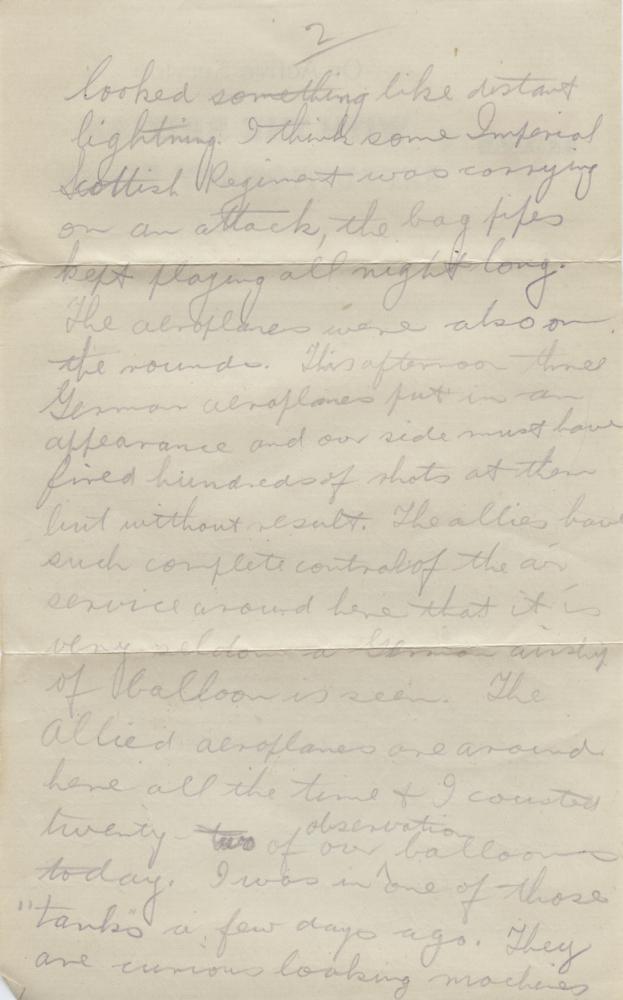 2
looked something like distant
lightning. I think some Imperial
Scottish Regiment was carrying
on an attack, the bag pipes
kept playing all night long.
The aeroplanes were also on
the rounds. This afternoon three
German aeroplanes put in an
appearance and our side must have
fired hundreds of shots at them
but without result. The allies have
such complete control of the air
service around here that it is
very seldom a German airship
of balloon is seen. The
allied aeroplanes are around
here all the time & I counted
twenty-two of our observation balloons
today. I was in one of those
"tanks" a few days ago. They
are curious looking machines